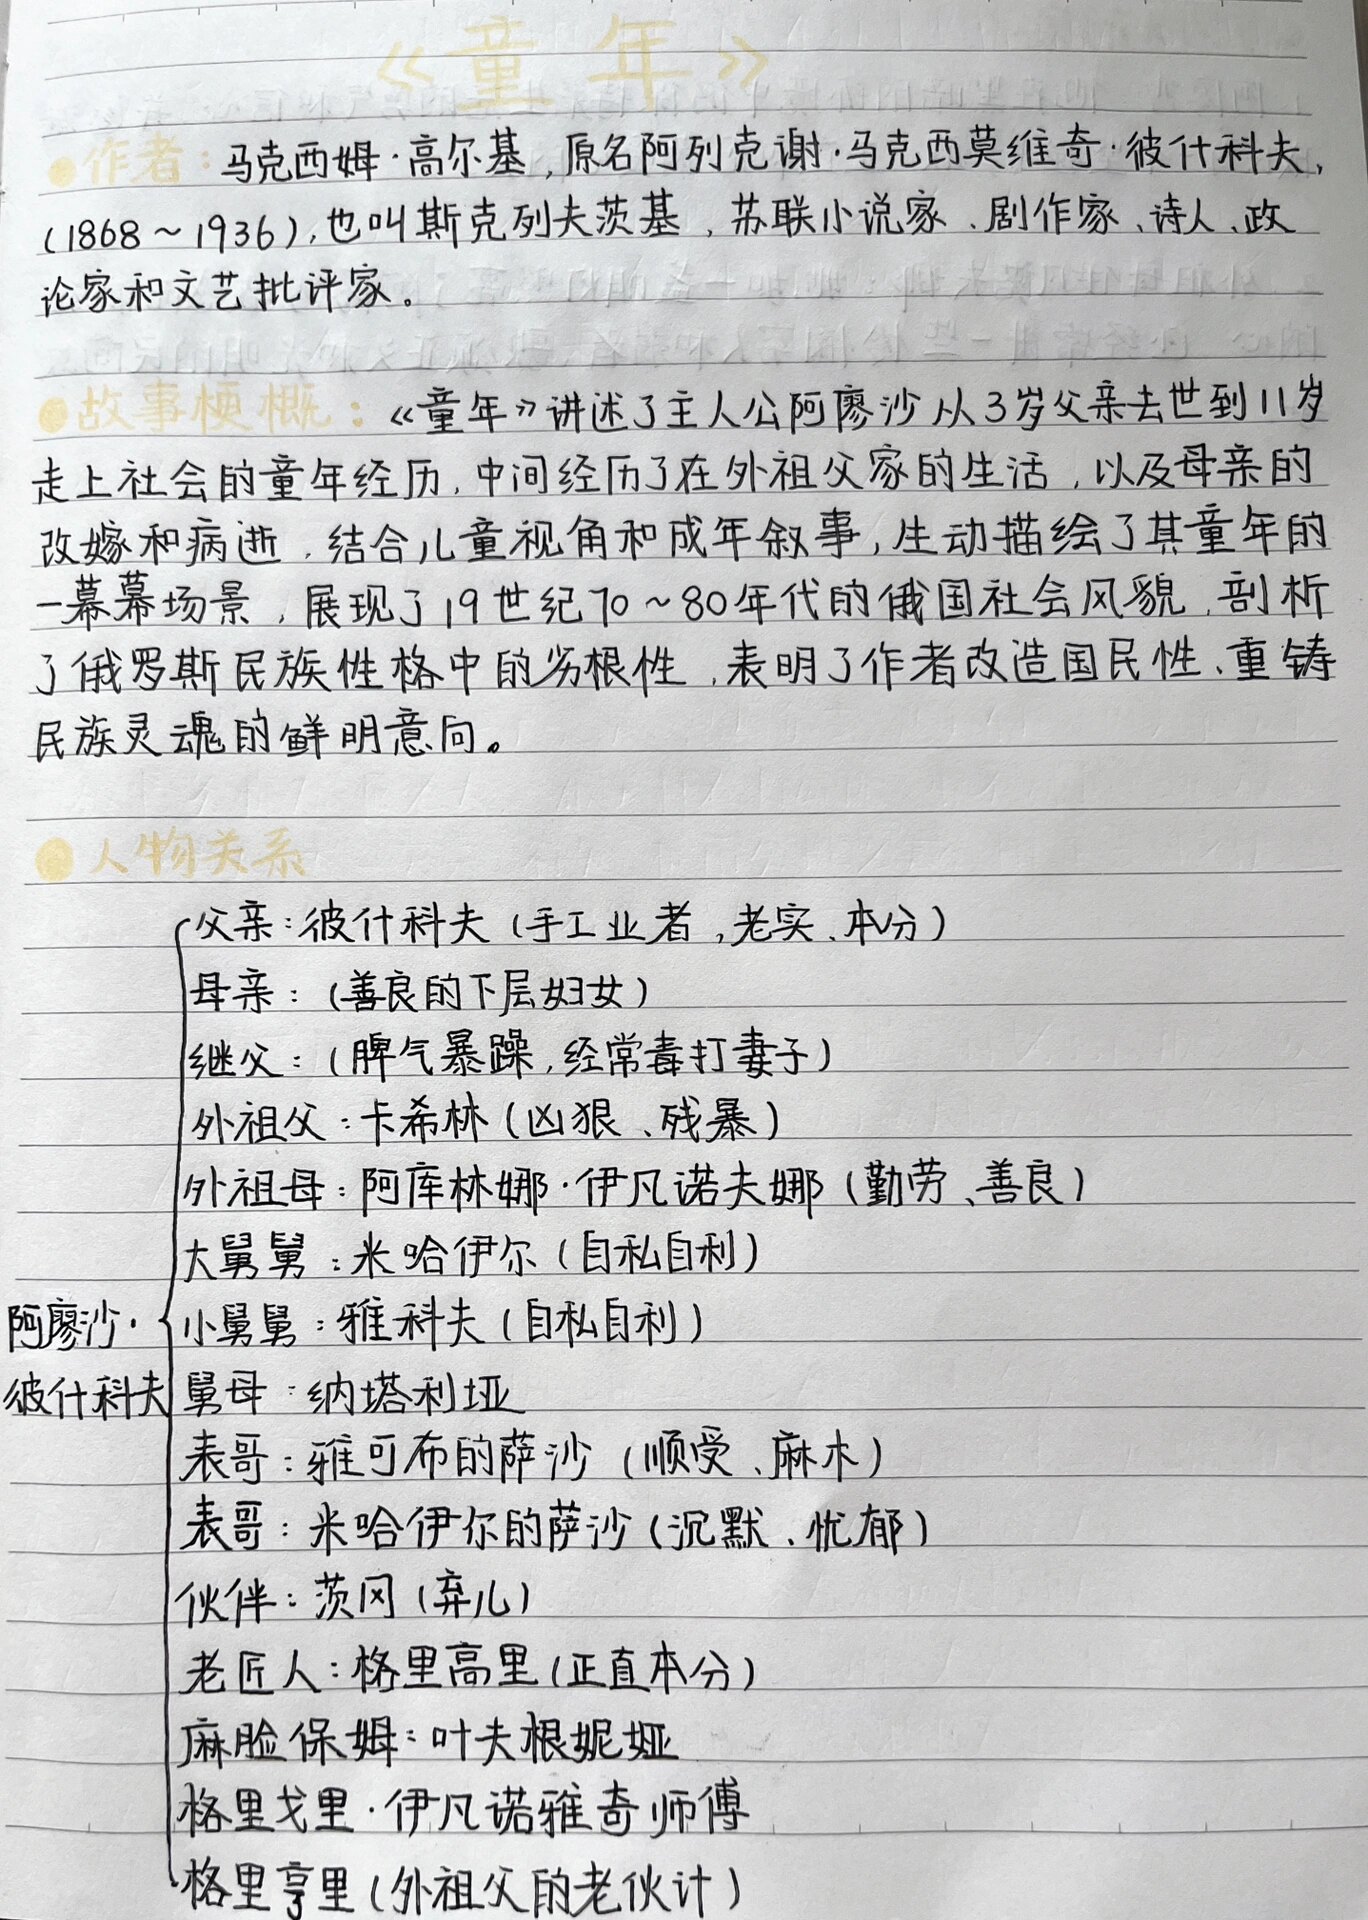 《童年》
作者：马克西姆·高尔基，原名阿列克谢·马克西莫维奇·彼什科夫，
(1868～1936)，也叫斯克列夫茨基，苏联小说家、剧作家、诗人、政
论家和文艺批评家。
故事梗概：《童年》讲述了主人公阿廖沙从3岁父亲去世到11岁
走上社会的童年经历，中间经历了在外祖父家的生活，以及母亲的
改嫁和病逝，结合儿童视角和成年叙事，生动描绘了其童年的
一幕幕场景，展现了19世纪70～80年代的俄国社会风貌，剖析
了俄罗斯民族性格中的劣根性，表明了作者改造国民性、重铸
民族灵魂的鲜明意向。
人物关系
父亲：彼什科夫（手工业者，老实、本分）
母亲：（善良的下层妇女）
继父：（脾气暴躁，经常毒打妻子）
外祖父：卡希林（凶狠、残暴）
外祖母：阿库林娜·伊凡诺夫娜（勤劳、善良）
大舅舅：米哈伊尔（自私自利）
阿廖沙· 小舅舅：雅科夫（自私自利）
彼什科夫 舅母：纳塔利娅
表哥：雅可布的萨沙（顺受、麻木）
表哥：米哈伊尔的萨沙（沉默、忧郁）
伙伴：茨冈（弃儿）
老匠人：格里高里（正直本分）
麻脸保姆：叶夫根妮娅
格里戈里·伊凡诺雅奇师傅
格里亨里（外祖父的老伙计）